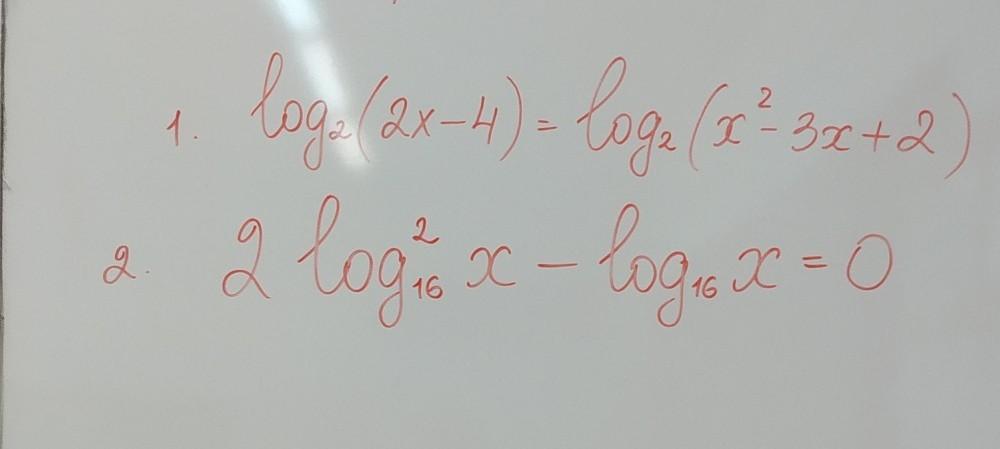 1. log₂(2x-4) = log₂(x²-3x+2)
2. 2 log²₁₆ x - log₁₆ x = 0